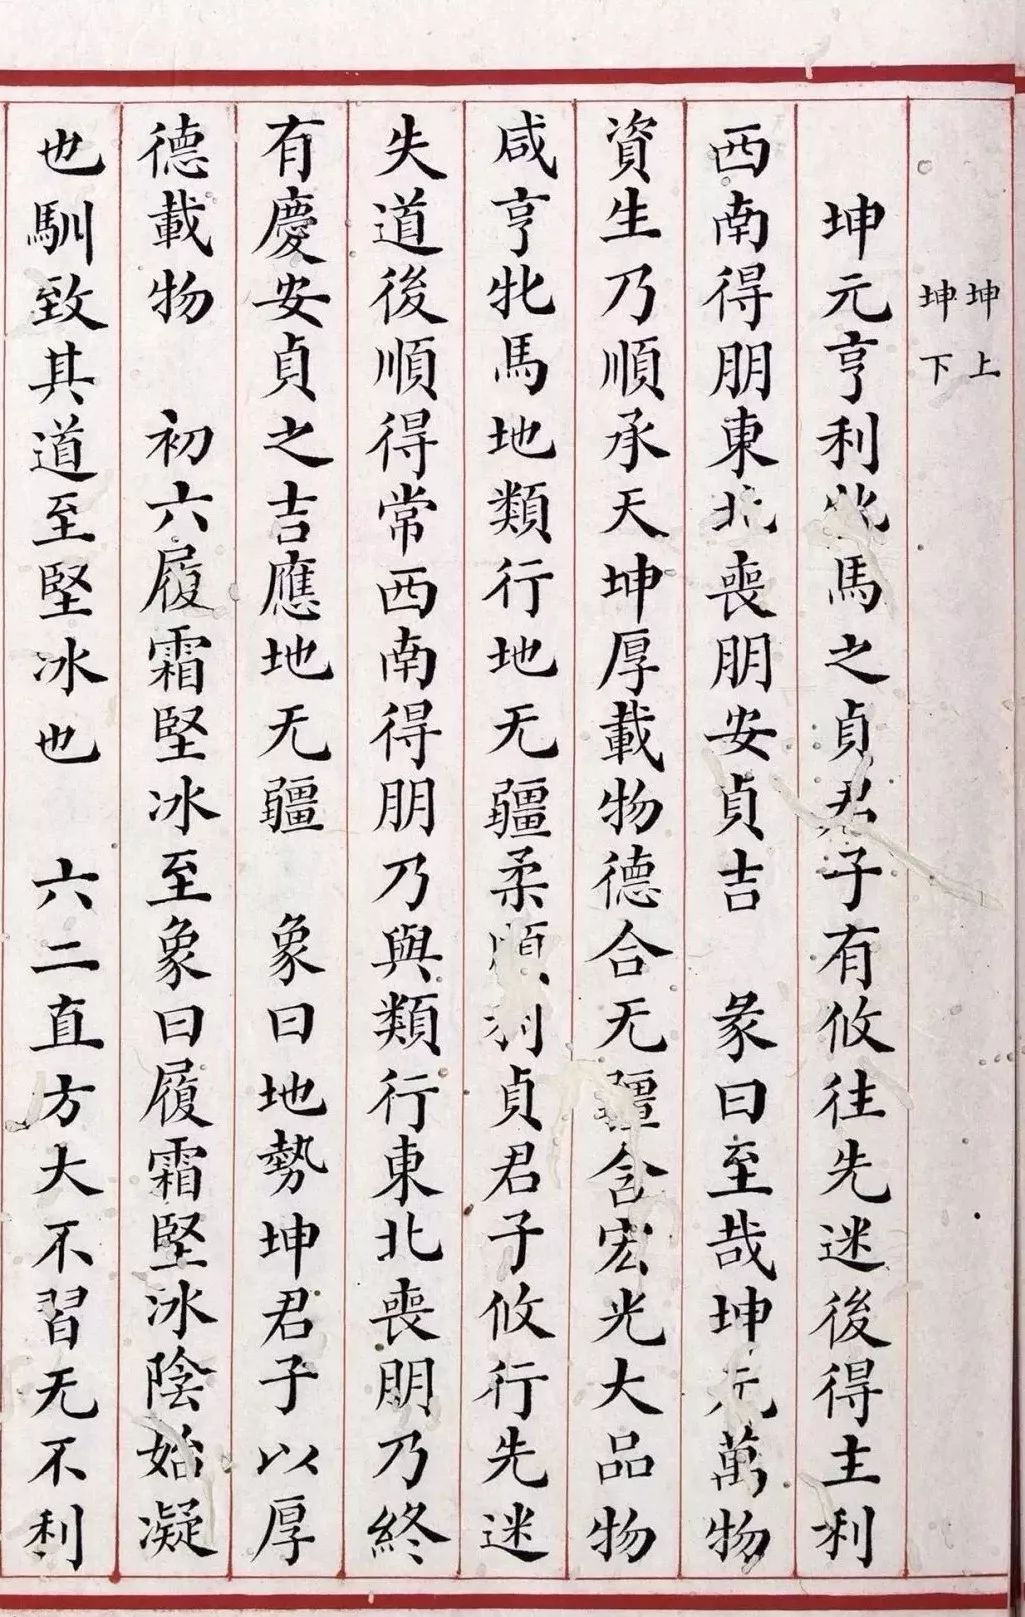 坤上
坤下
坤元亨利牝馬之貞君子有攸往先迷後得主利
西南得朋東北喪朋安貞吉　彖曰至哉坤元萬物
資生乃順承天坤厚載物德合无疆含宏光大品物
咸亨牝馬地類行地无疆柔順利貞君子攸行先迷
失道後順得常西南得朋乃與類行東北喪朋乃終
有慶安貞之吉應地无疆　象曰地勢坤君子以厚
德載物　初六履霜堅冰至象曰履霜堅冰陰始凝
也馴致其道至堅冰也　六二直方大不習无不利